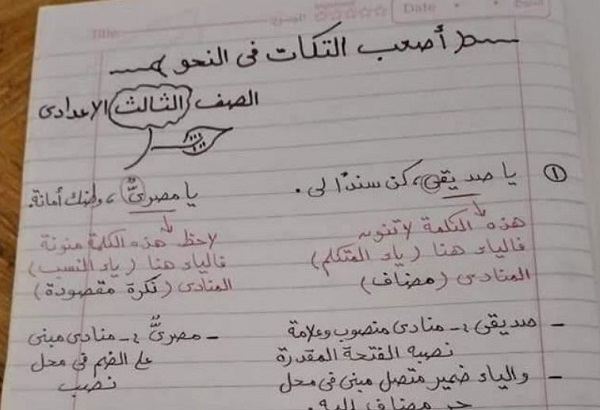 Title
Date
أصعب التكات فى النحو
الصف الثالث الإعدادى
① يا صديقى، كن سندًا لى. يا مصرىُّ، وطنك أمانة.
هذه الكلمة لا تنون لاحظ هذه الكلمة منونة
فالياء هنا (ياء المتكلم) فالياء هنا (ياء النسب)
المنادى (مضاف) المنادى (نكرة مقصودة)
- صديقى :- منادى منصوب وعلامة - مصرىُّ :- منادى مبنى
نصبه الفتحة المقدرة على الضم فى محل
- والياء ضمير متصل مبنى فى محل نصب
جر مضاف إليه.